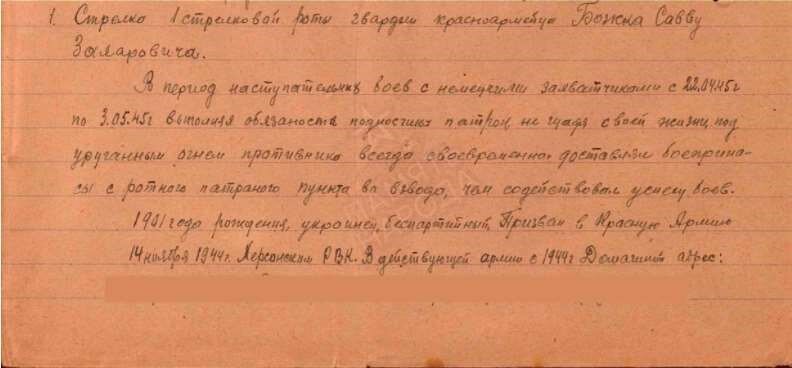 1. Стрелка 1 стрелковой роты гвардии красноармейца Божка Савву
Захаровича.
В период наступательных боев с немецкими захватчиками с 22.04.45г
по 3.05.45г выполняя обязаности подносчика патрон не щадя своей жизни под
ураганным огнем противника всегда своевременно доставлял боеприпа-
сы с ротного патраного пункта во взвода, чем содействовал успеху боев.
1901 года рождения, украинец, беспартийный, Призван в Красную Армию
14 ноября 1944г. Херсонским РВК. В действующей армии с 1944г Домашний адрес: